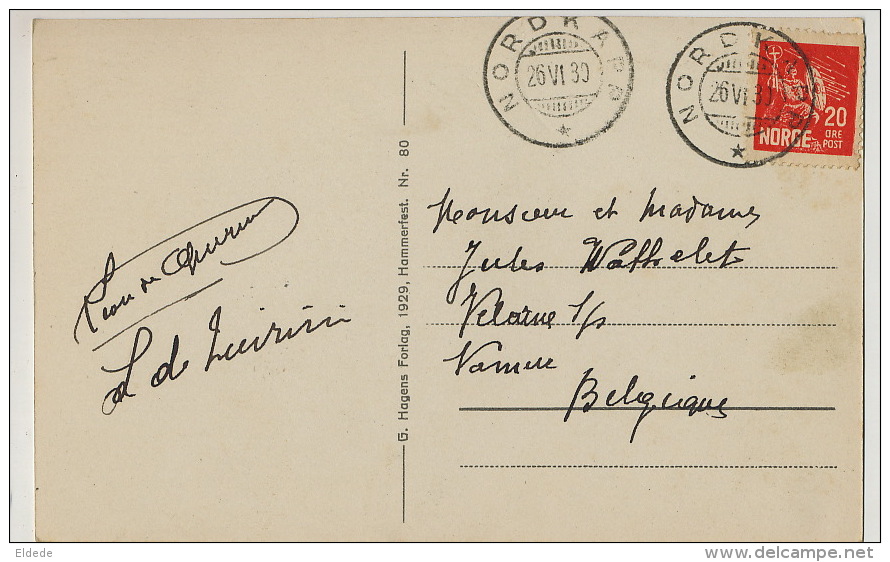 NORDKAPP
26 VI 30
NORDKAPP
26 VI 30
20
ØRE
NORGE POST
Monsieur et Madame
Jules Wathelet
Velaine s/s
Namur
Belgique
L de
G. Hagens Forlag, 1929, Hammerfest. Nr. 80
Eldede
delcampe.net